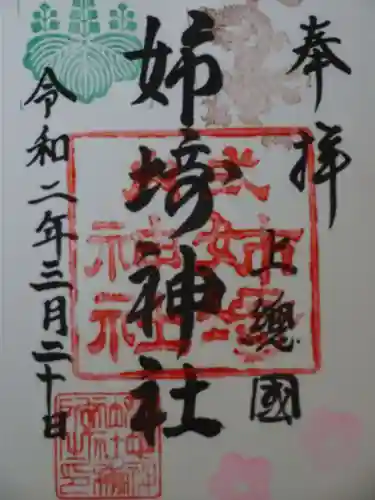 奉拝
上總國
姉埼神社
令和二年三月二十日